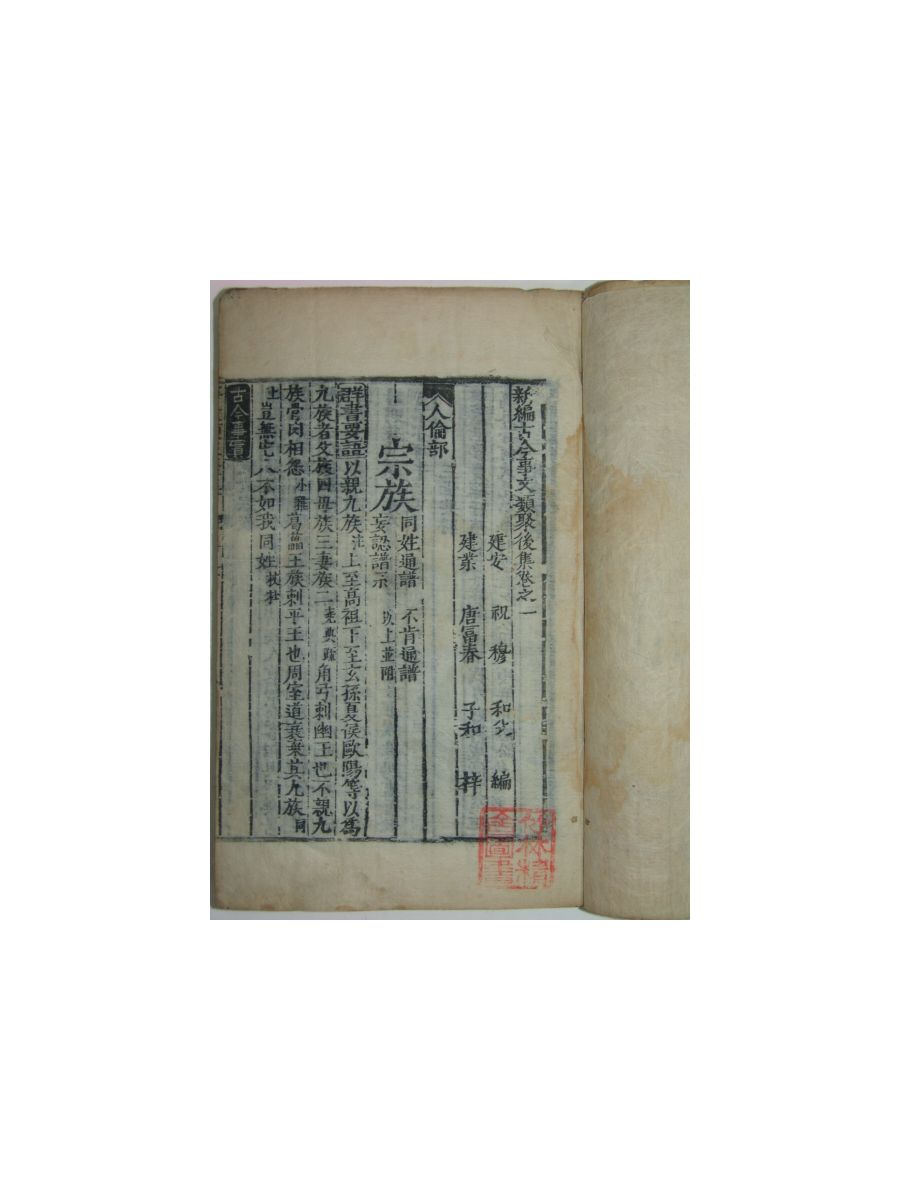 新編古今事文類聚後集卷之一
建安 祝 穆 和父 編
建業 唐冨春 子和 梓
人倫部
宗族 同姓通譜 不肯通譜
妄認譜系 以上並附
群書要語 以親九族 注上至高祖下至玄孫夏侯歐陽等以爲
九族者父族四母族三妻族二 堯典疏 角弓刺幽王也不親九
族骨肉相怨 小雅 葛藟王族刺平王也周室道衰棄其九族 同
上 豈無他人不如我同姓 杕杜
古今事實
竹林精
舍圖書